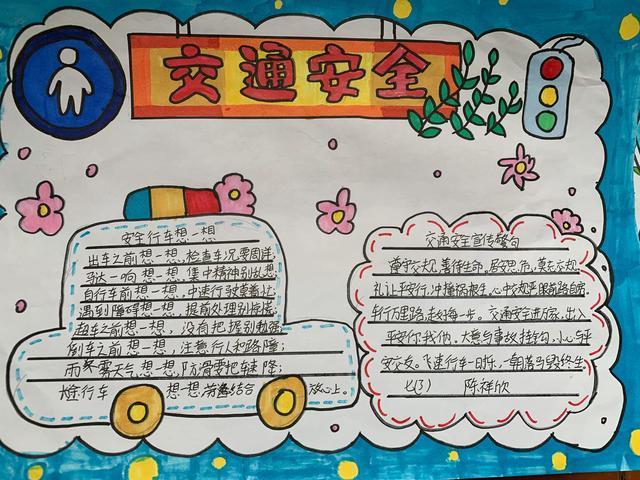 交通安全
安全行车想一想
出车之前想一想,检查车况要周详;
马达一响想一想,集中精神别乱想;
自行车前想一想,中速行驶莫着忙;
遇到障碍想一想,提前处理别惊慌;
超车之前想一想,没有把握别勉强;
倒车之前想一想,注意行人和路障;
雨冬雾天气想一想,防滑要把车速降;
行车 想一想, 结合 放心上。
交通安全宣传警句
遵守交规,善待生命。居安思危,莫忘交规
礼让平安行,冲撞祸根生。心中交规严眼前路自宽
行万里路,走好每一步。交通安全进万家,出入
平安你我他。大意与事故挂钩,小心与平
安交友。飞速行车一日乐,一朝落马毁终生。
七(3) 陈祥欣